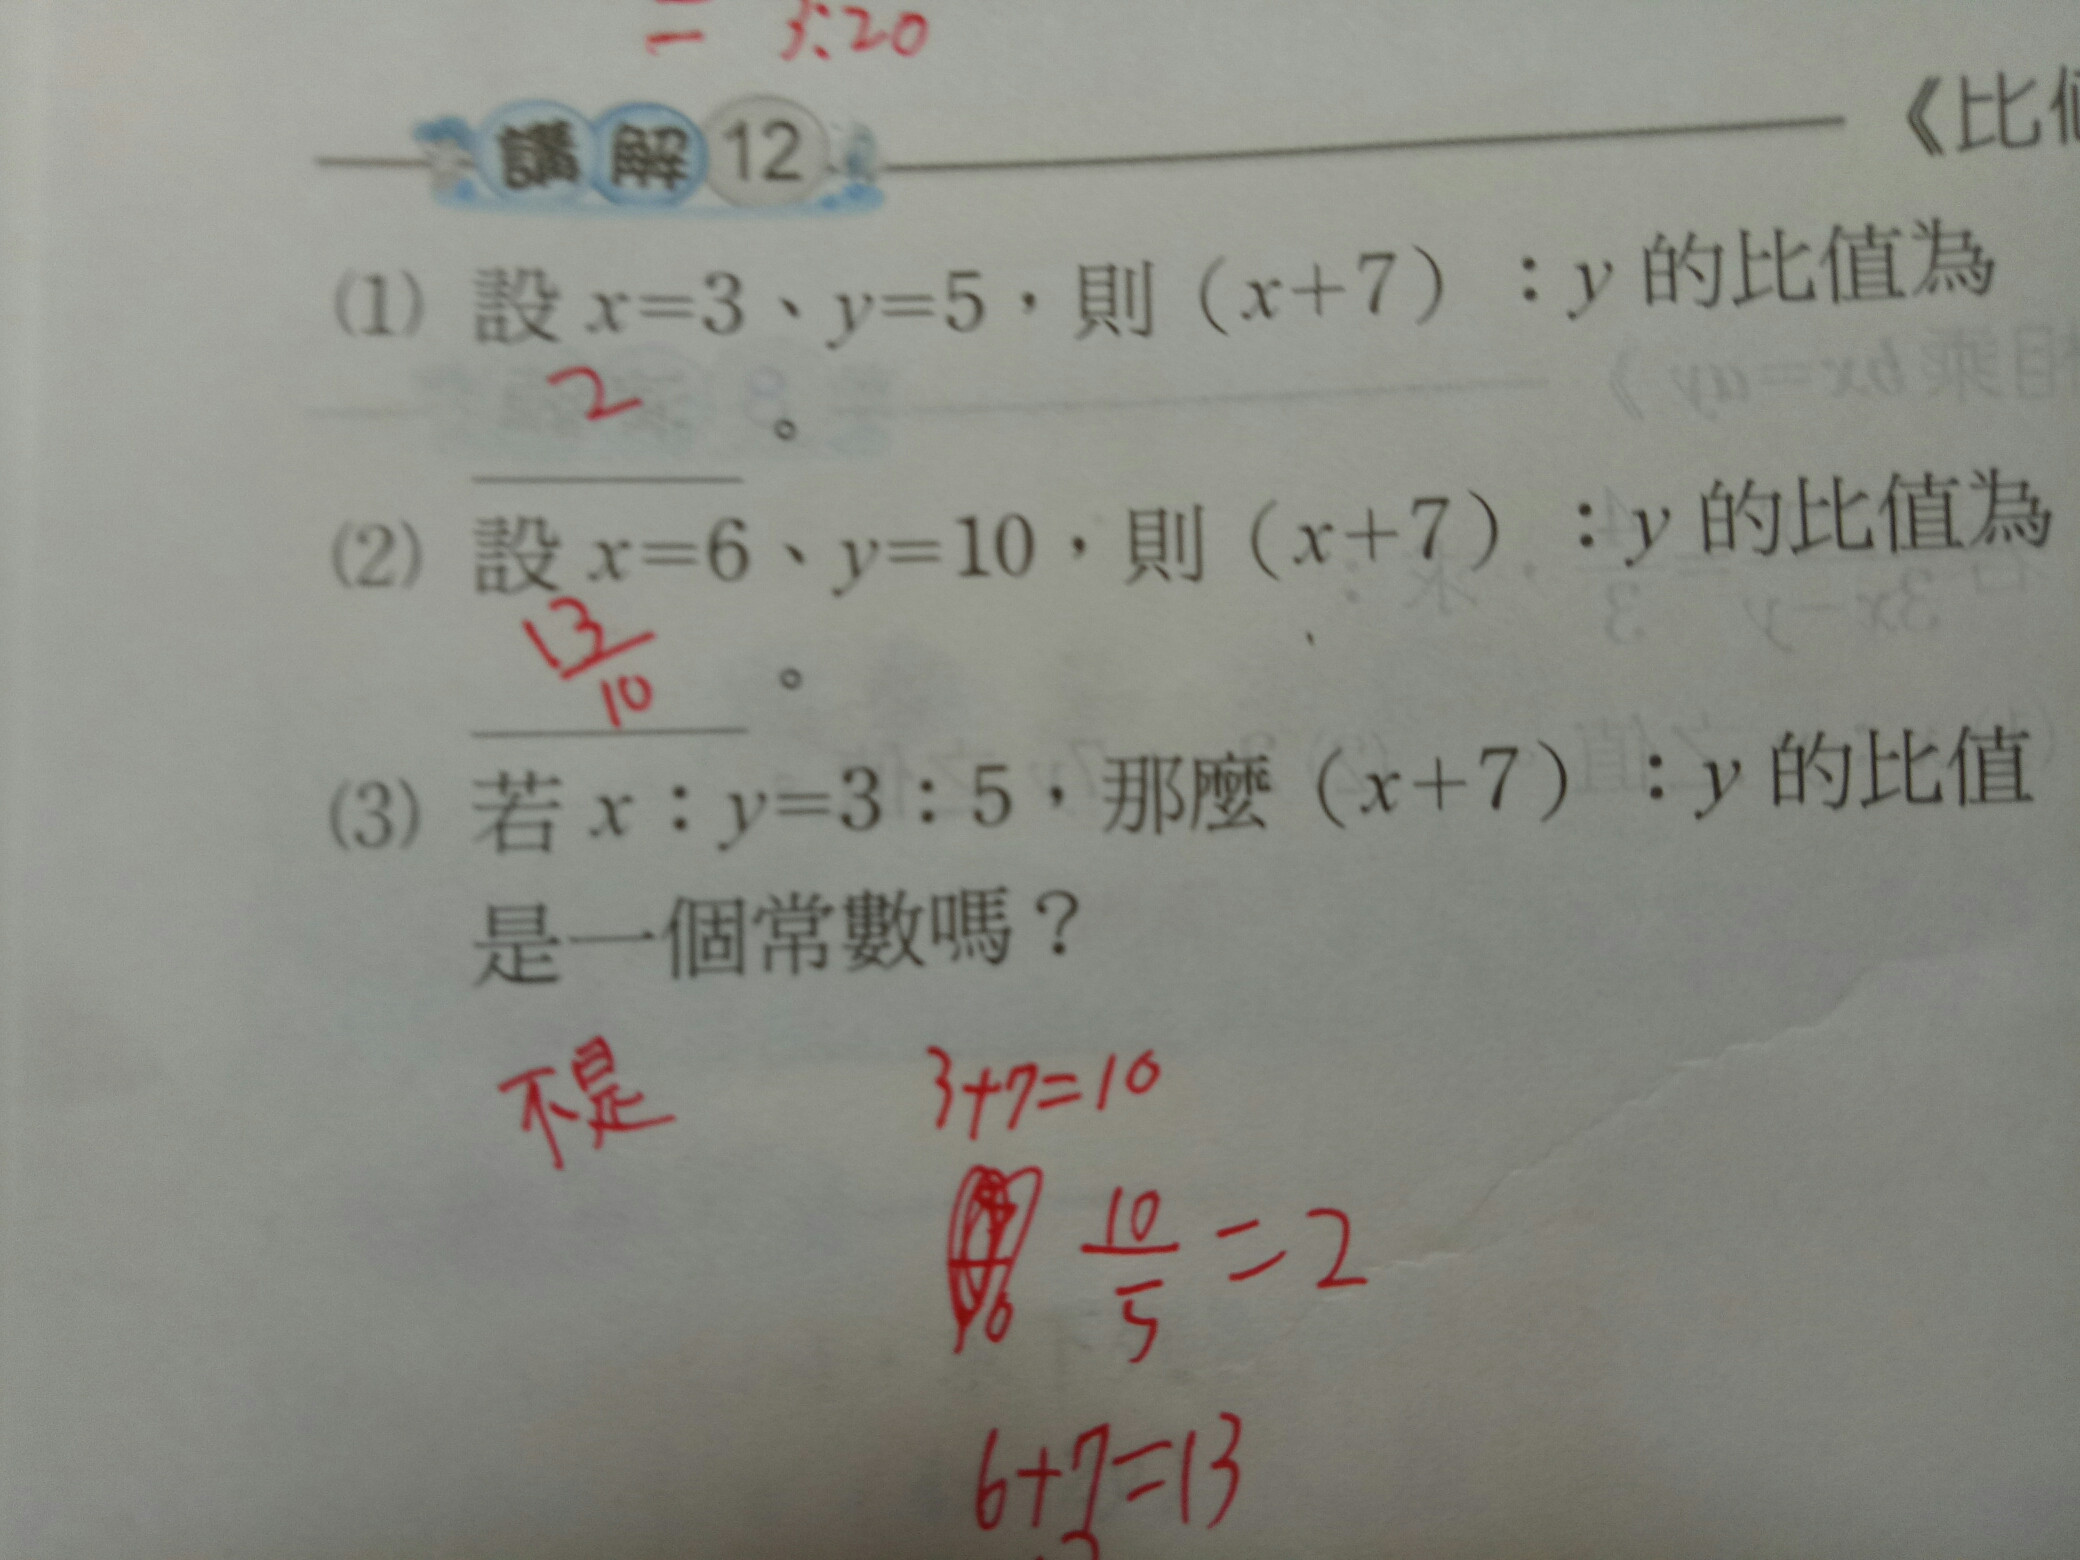 = 3:20
講解12 《比
(1) 設 x=3、y=5，則（x+7）：y 的比值為
2 。
(2) 設 x=6、y=10，則（x+7）：y 的比值為
13/10 。
(3) 若 x：y=3：5，那麼（x+7）：y 的比值
是一個常數嗎？
不是 3+7=10
10/5 = 2
6+7=13